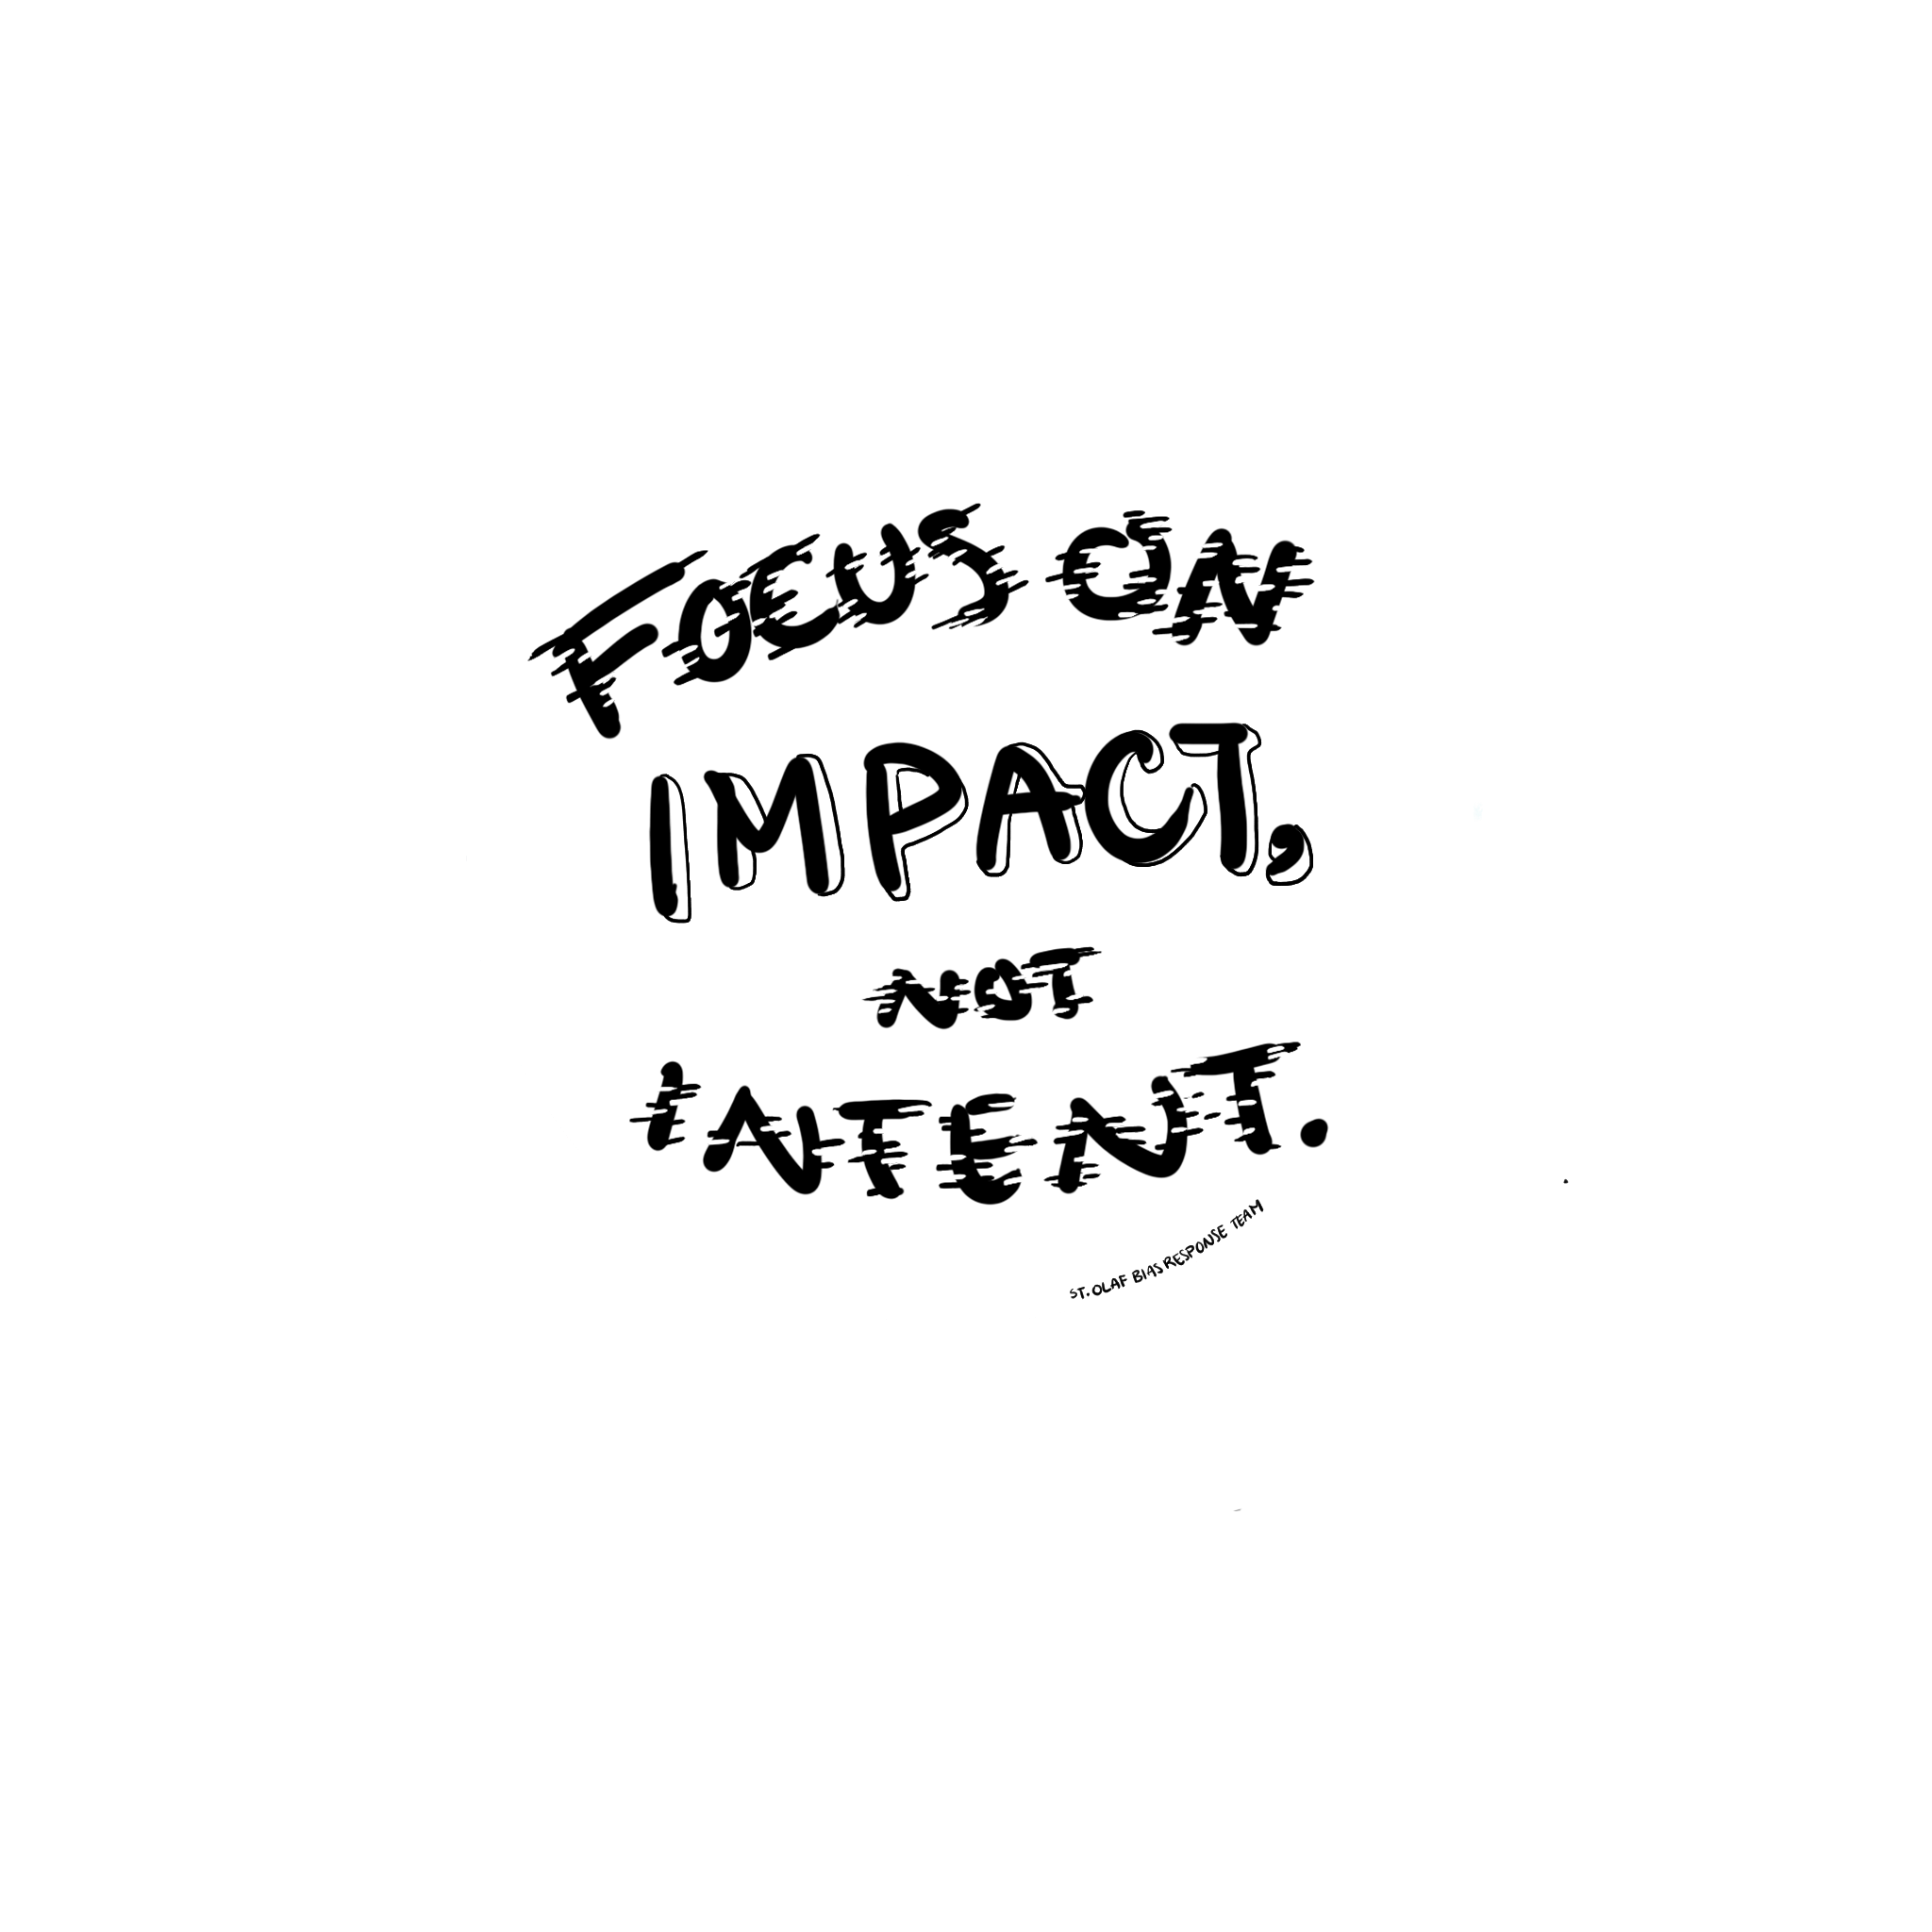 FOCUS ON
IMPACT,
NOT
INTENT.
ST. OLAF BIAS RESPONSE TEAM